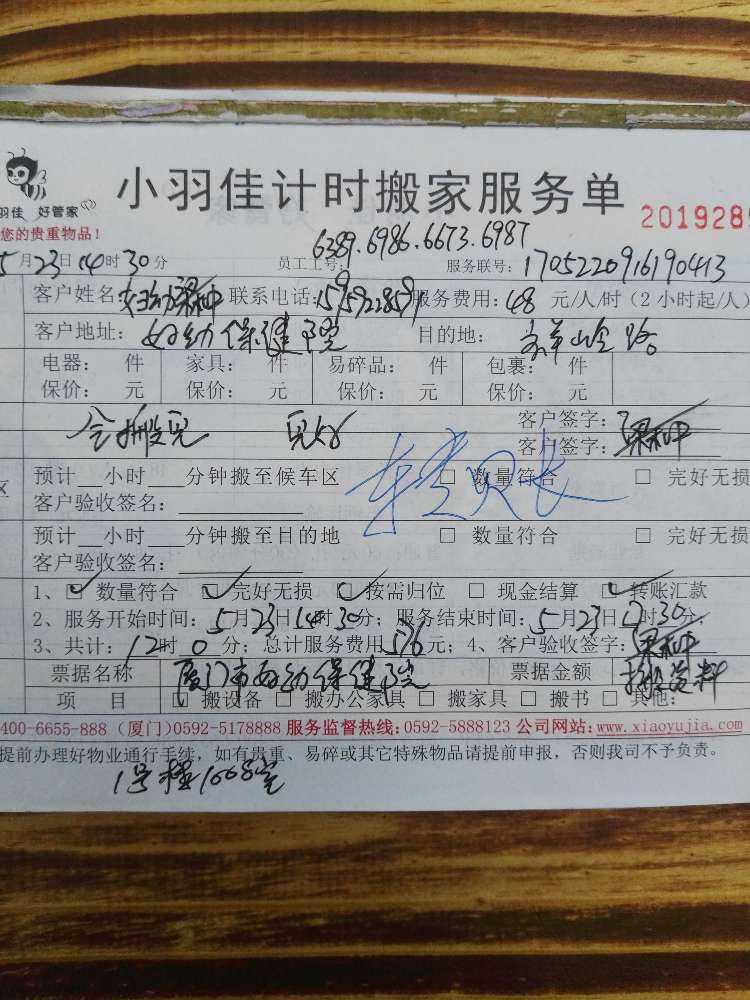 小羽佳计时搬家服务单
羽佳 好管家
2019289
您的贵重物品！
6389.6986.6673.6987
5月23日14时30分 员工工号： 服务联号：1705220916190413
客户姓名： 联系电话： 服务费用：48 元/人/时（2小时起/人）
客户地址：妇幼保健院 目的地：
电器： 件 家具： 件 易碎品： 件 包裹： 件
保价： 元 保价： 元 保价： 元 保价： 元
客户签字：
客户签字：
区 预计__小时___分钟搬至候车区 □ 数量符合 □ 完好无损
客户验收签名：
预计__小时___分钟搬至目的地 □ 数量符合 □ 完好无损
客户验收签名：
1、☑ 数量符合 ☑ 完好无损 ☑ 按需归位 □ 现金结算 ☑ 转账汇款
2、服务开始时间：5月23日14时30分；服务结束时间：5月23日 时30分；
3、共计：12时0分；总计服务费用576元；4、客户验收签字：
票据名称 厦门市妇幼保健院 票据金额
项 目 □ 搬设备 □ 搬办公家具 □ 搬家具 □ 搬书 □ 其他：
400-6655-888（厦门）0592-5178888 服务监督热线：0592-5888123 公司网站：www.xiaoyujia.com
提前办理好物业通行手续，如有贵重、易碎或其它特殊物品请提前申报，否则我司不予负责。
1号楼1008室